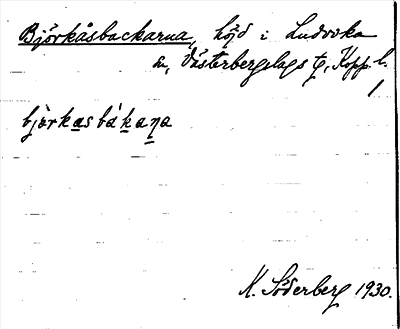 Björkåsbackarna, höjd i Ludvika
sn, Västerbergslags tg, Kopp. l.
1
bjàrkasbákaṇa
K. Söderberg 1930.